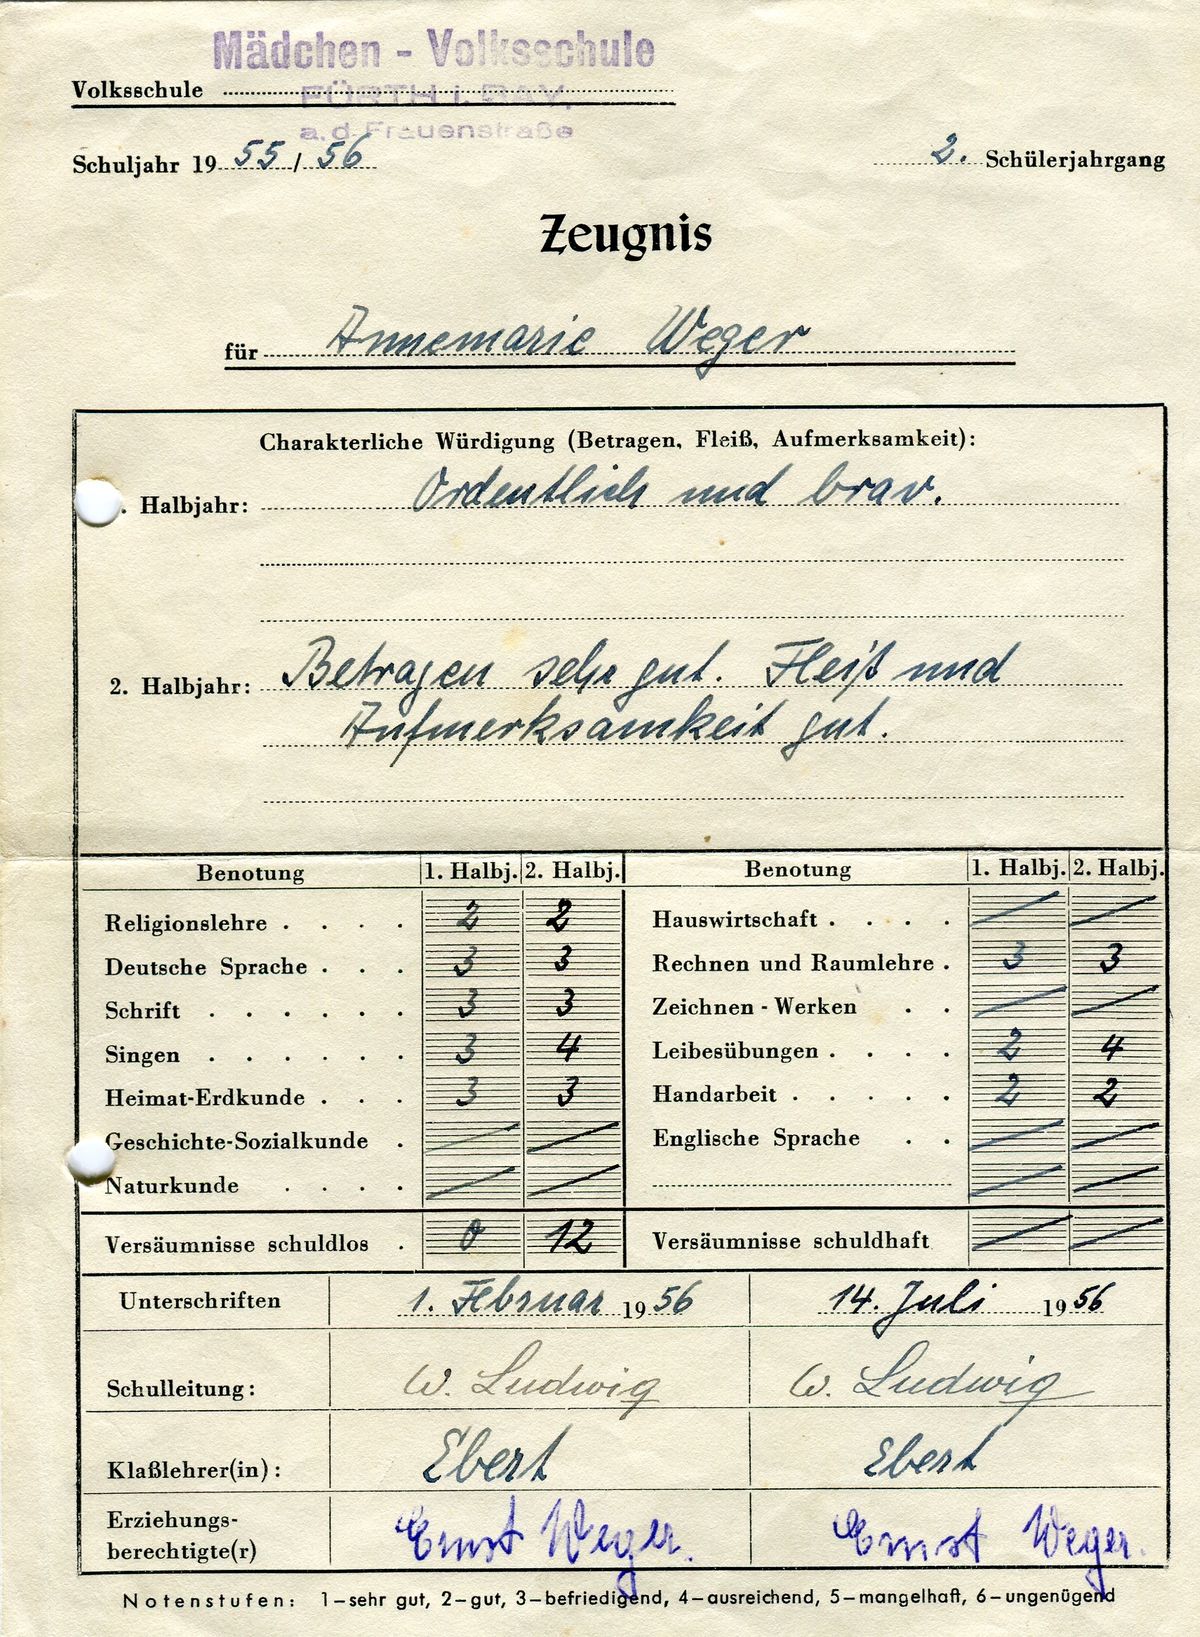 Mädchen - Volksschule
Volksschule
FÜRTH i. BAY.
a. d. Frauenstraße
Schuljahr 19 55 / 56 2. Schülerjahrgang
Zeugnis
für Annemarie Weger
Charakterliche Würdigung (Betragen, Fleiß, Aufmerksamkeit):
. Halbjahr: Ordentlich und brav.
2. Halbjahr: Betragen sehr gut. Fleiß und
Aufmerksamkeit gut.
Benotung 1. Halbj. 2. Halbj. Benotung 1. Halbj. 2. Halbj.
Religionslehre . . . . 2 2 Hauswirtschaft . . . .
Deutsche Sprache . . . 3 3 Rechnen und Raumlehre . 3 3
Schrift . . . . . . 3 3 Zeichnen - Werken . .
Singen . . . . . . 3 4 Leibesübungen . . . . 2 4
Heimat-Erdkunde . . . 3 3 Handarbeit . . . . . 2 2
Geschichte-Sozialkunde . Englische Sprache . .
Naturkunde . . . .
Versäumnisse schuldlos . 0 12 Versäumnisse schuldhaft
Unterschriften 1. Februar 1956 14. Juli 1956
Schulleitung: W. Ludwig W. Ludwig
Klaßlehrer(in): Ebert Ebert
Erziehungs-
berechtigte(r) Ernst Weger. Ernst Weger.
Notenstufen: 1–sehr gut, 2–gut, 3–befriedigend, 4–ausreichend, 5–mangelhaft, 6–ungenügend